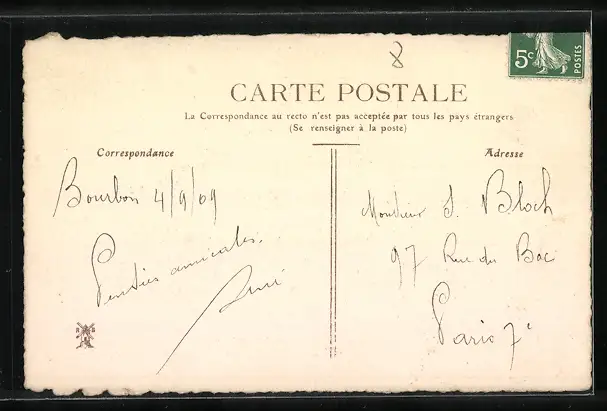 8
5c
POSTES
CARTE POSTALE
La Correspondance au recto n'est pas acceptée par tous les pays étrangers
(Se renseigner à la poste)
Correspondance
Adresse
Bourbon 4/9/09
Pensées amicales.
Monsieur J. Bloch
97 Rue du Bac
Paris 7e